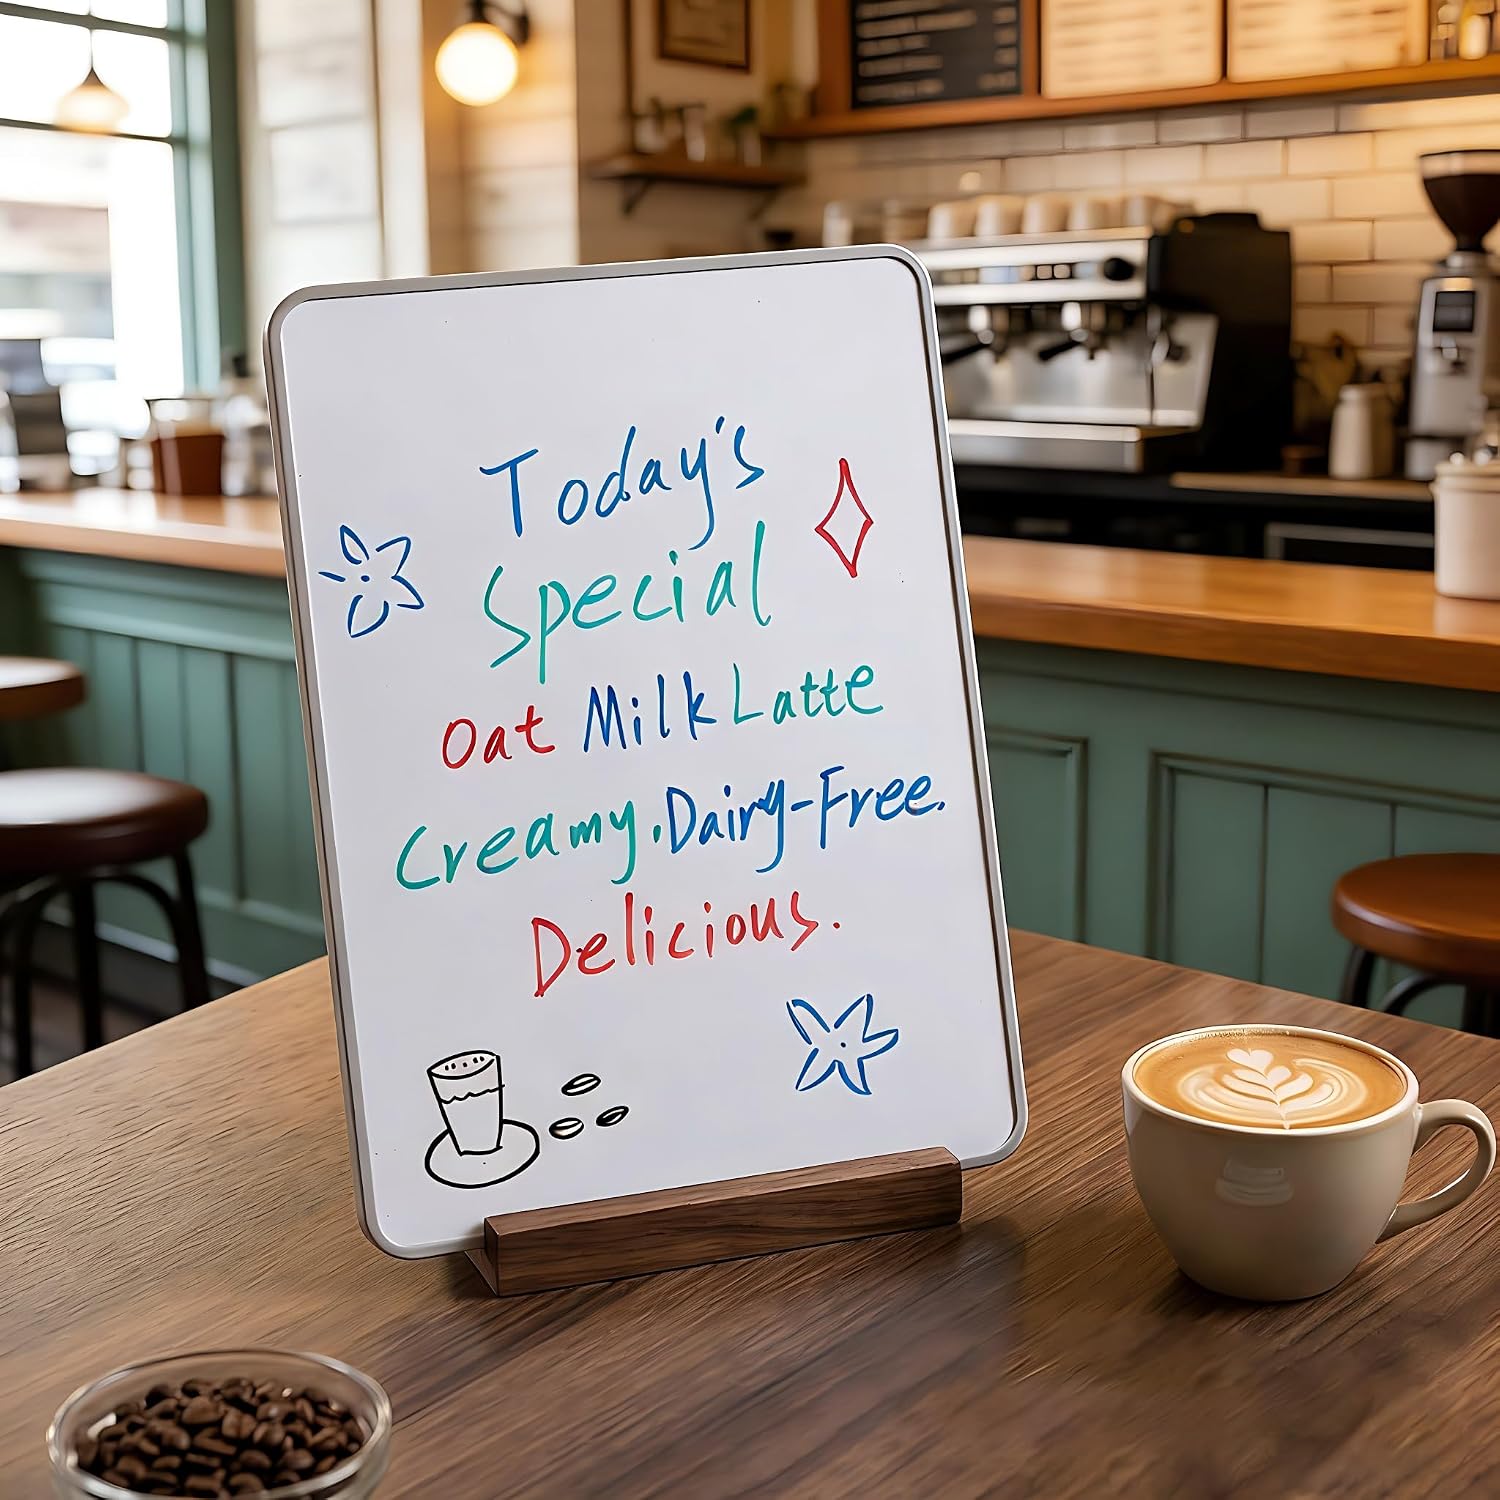 Today's
Special
Oat Milk Latte
Creamy. Dairy-Free.
Delicious.